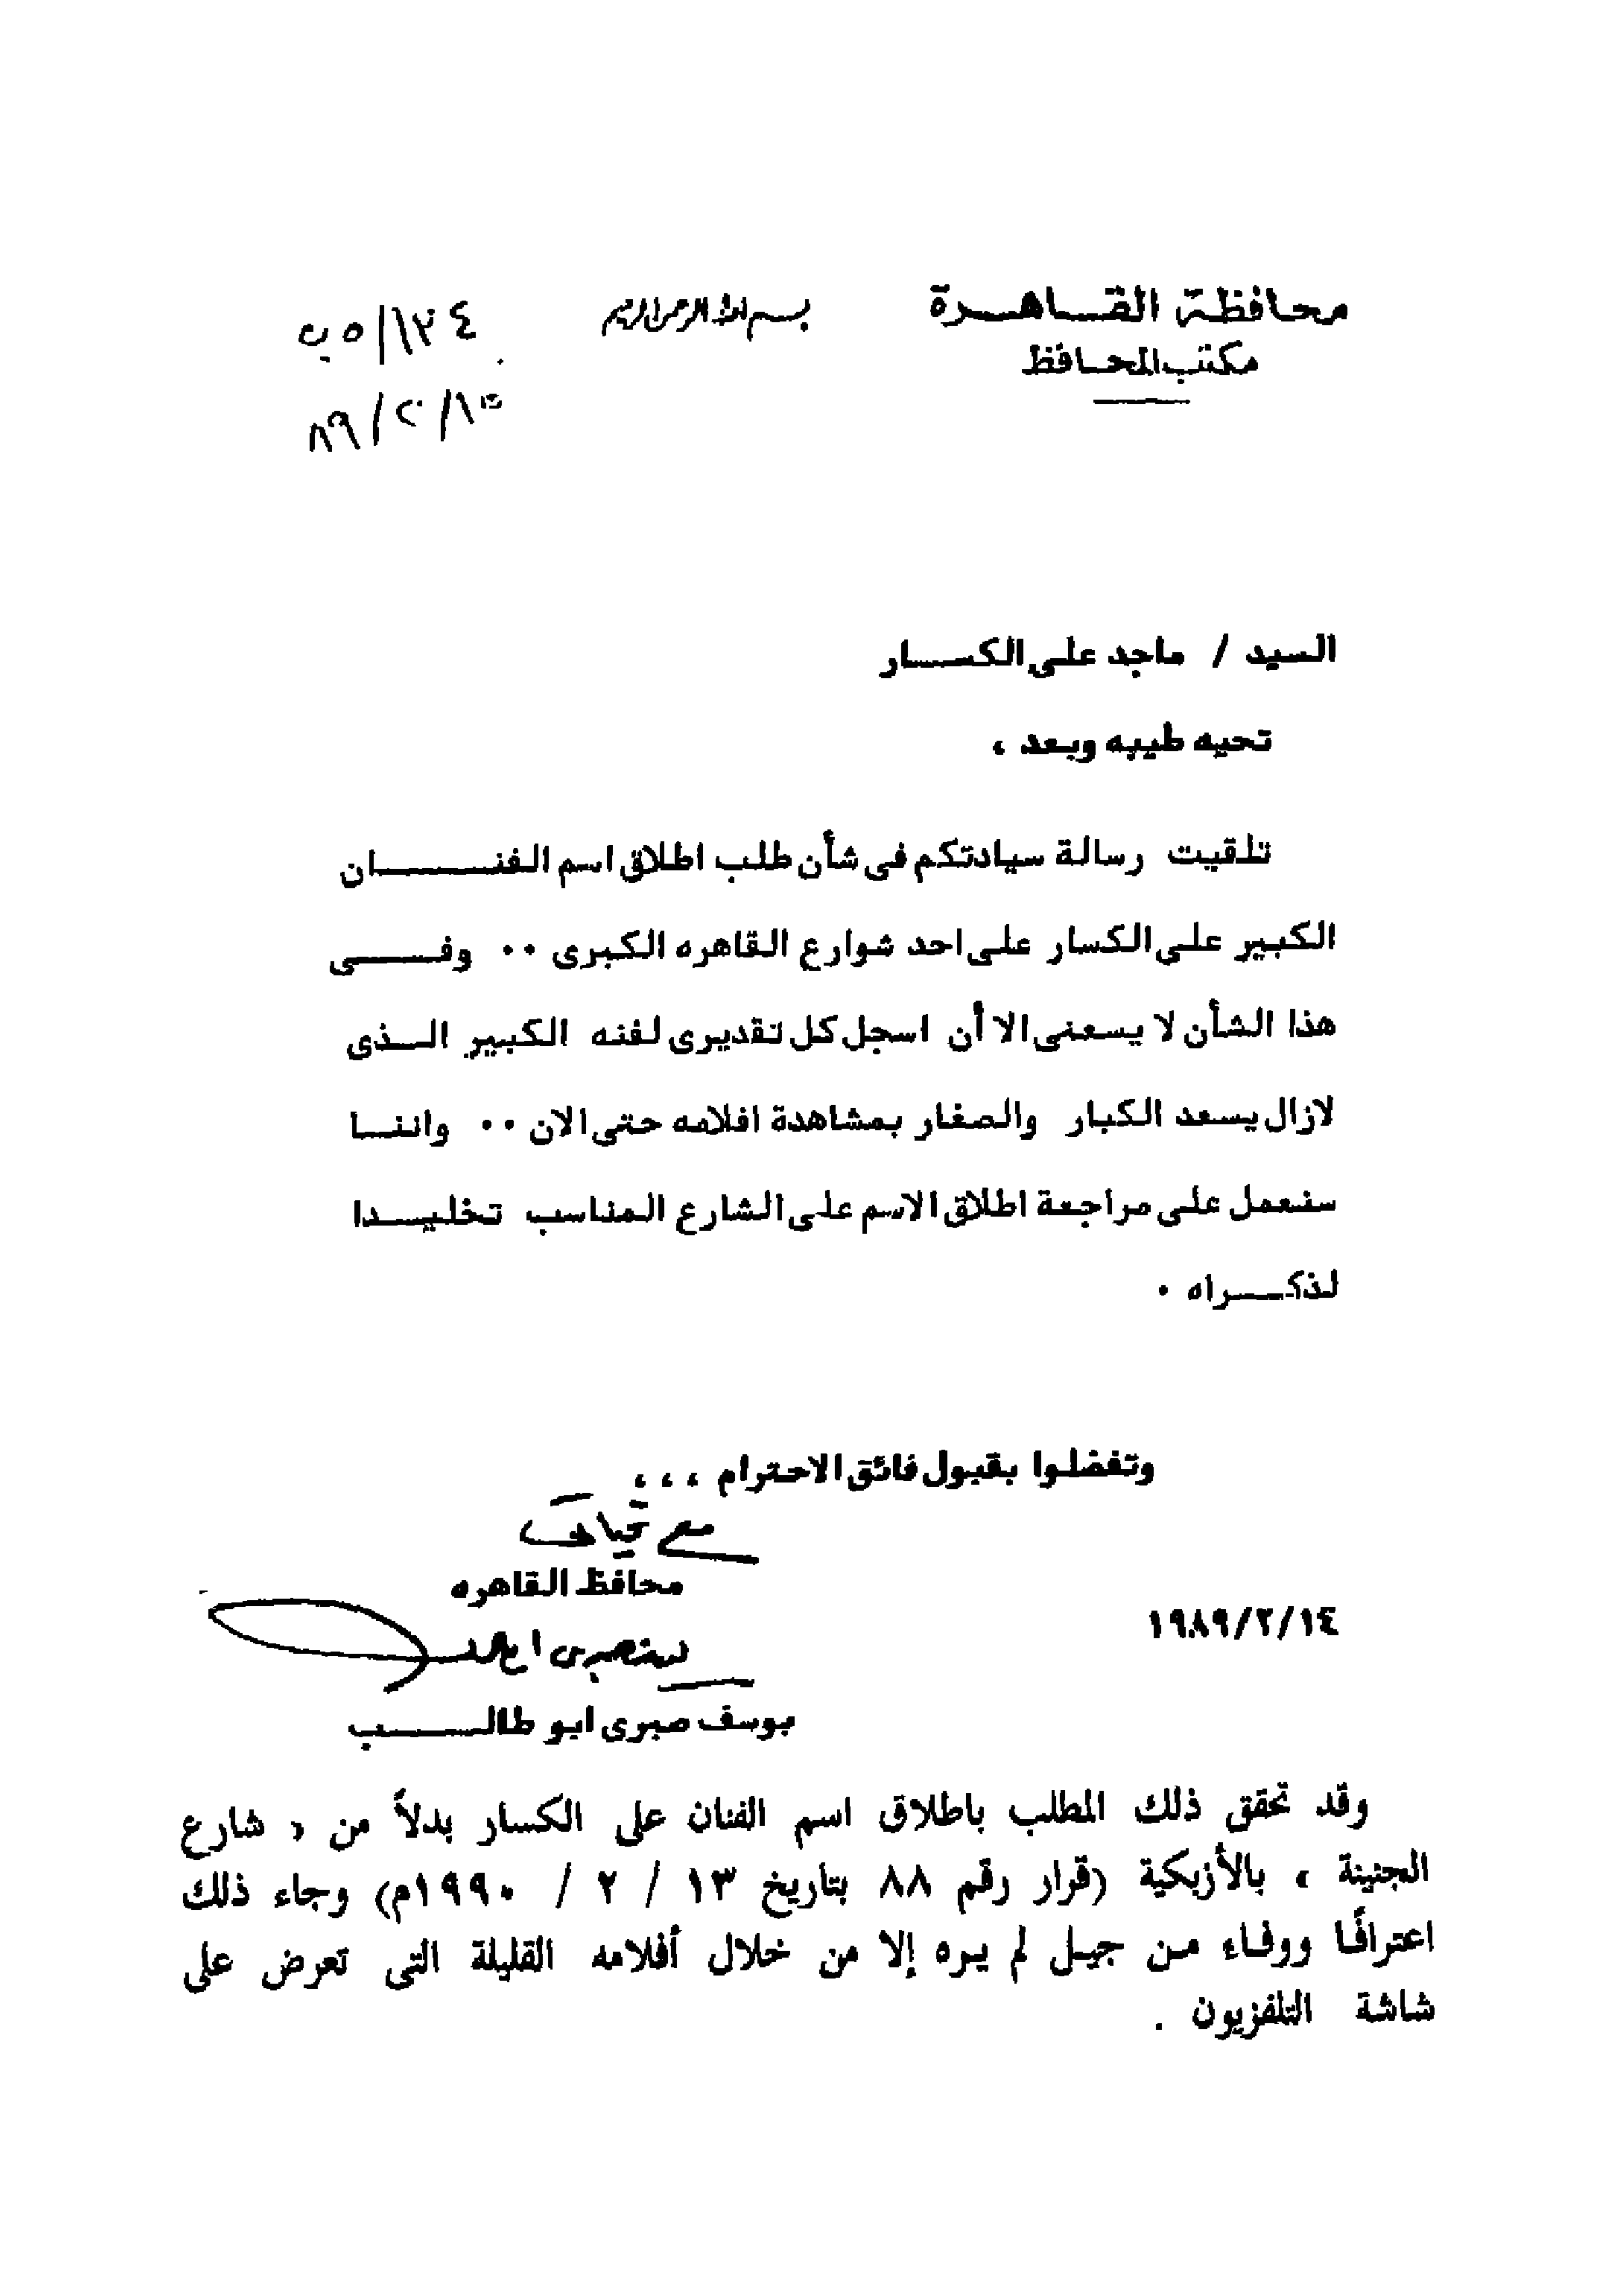 محافظة القاهرة
مكتب المحافظ
بسم الله الرحمن الرحيم
٨٩/٢/١٥
السيد / ماجد على الكسار
تحيه طيبه وبعد ،
تلقيت رسالة سيادتكم فى شأن طلب اطلاق اسم الفنان
الكبير على الكسار على احد شوارع القاهره الكبرى ٠٠ وفى
هذا الشأن لا يسعنى الا أن اسجل كل تقديرى لفنه الكبير الذى
لازال يسعد الكبار والصغار بمشاهدة افلامه حتى الان ٠٠ واننا
سنعمل على مراجعة اطلاق الاسم على الشارع المناسب تخليدا
لذكراه ٠
وتفضلوا بقبول فائق الاحترام ، ، ،
مع تحياتى
محافظ القاهره
١٩٨٩/٢/١٤
يوسف صبرى ابو طالب
وقد تحقق ذلك المطلب باطلاق اسم الفنان على الكسار بدلاً من « شارع
الجنينة » بالأزبكية (قرار رقم ٨٨ بتاريخ ١٣ / ٢ / ١٩٩٠م) وجاء ذلك
اعترافًا ووفاء من جيل لم يره إلا من خلال أفلامه القليلة التى تعرض على
شاشة التلفزيون .